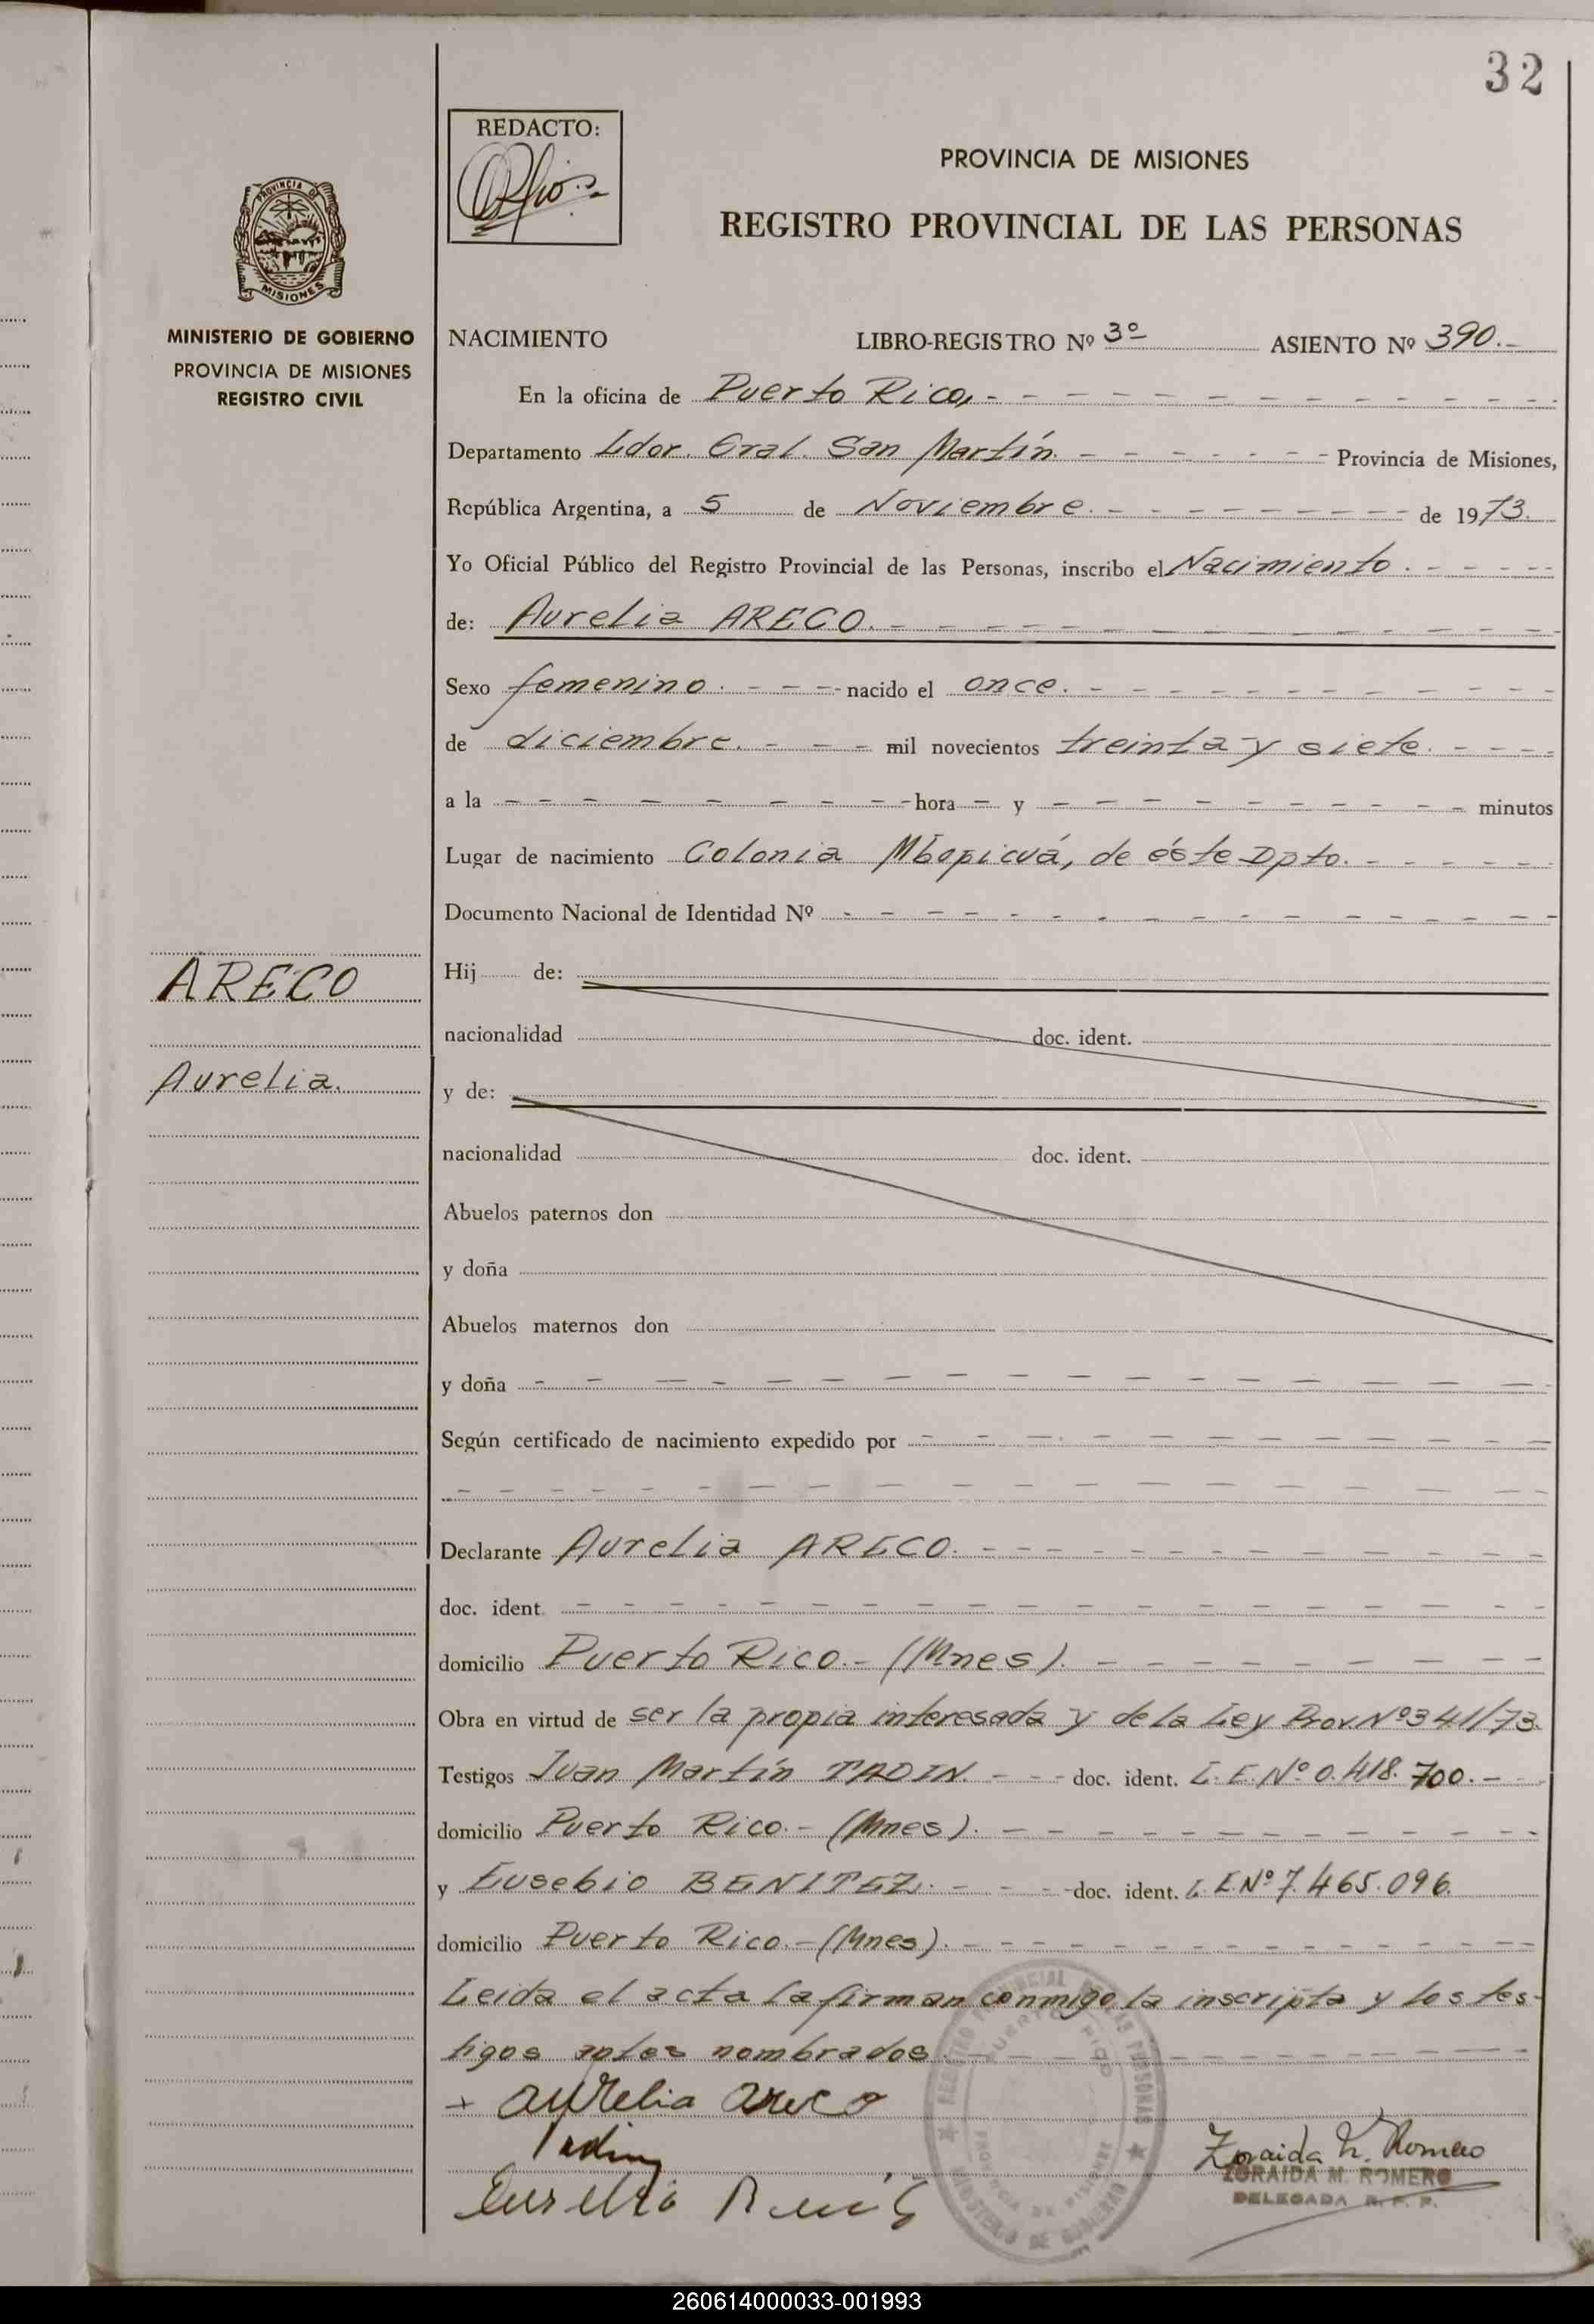 32
REDACTO:
PROVINCIA DE MISIONES
REGISTRO PROVINCIAL DE LAS PERSONAS
PROVINCIA DE
MISIONES
MINISTERIO DE GOBIERNO
PROVINCIA DE MISIONES
REGISTRO CIVIL
NACIMIENTO LIBRO-REGISTRO Nº 3º ASIENTO Nº 390.-
En la oficina de Puerto Rico,-
Departamento Ldor. Gral. San Martín. - Provincia de Misiones,
República Argentina, a 5 de Noviembre. - de 1973.
Yo Oficial Público del Registro Provincial de las Personas, inscribo el Nacimiento. -
de: Aurelia ARECO. -
Sexo femenino. - nacido el once. -
de diciembre. - mil novecientos treinta y siete. -
a la - hora - y - minutos
Lugar de nacimiento Colonia Mbopicuá, de éste Dpto. -
Documento Nacional de Identidad Nº -
ARECO
Aurelia.
Hij de:
nacionalidad doc. ident.
y de:
nacionalidad doc. ident.
Abuelos paternos don
y doña
Abuelos maternos don
y doña -
Según certificado de nacimiento expedido por -
Declarante Aurelia ARECO. -
doc. ident. -
domicilio Puerto Rico.- (Mnes). -
Obra en virtud de ser la propia interesada y de la Ley Prov. Nº 341/73.
Testigos Juan Martín TADIN. - doc. ident. L.E. Nº 0.418.700.-
domicilio Puerto Rico.- (Mnes). -
y Eusebio BENITEZ. - doc. ident. L.E. Nº 7.465.096.
domicilio Puerto Rico.- (Mnes). -
Leida el acta la firman conmigo la inscripta y los tes-
tigos antes nombrados. -
+ aurelia areco
Tadin
Zoraida M. Romero
ZORAIDA M. ROMERO
DELEGADA R. P. P.
REGISTRO PROVINCIAL DE LAS PERSONAS
PUERTO RICO
PROVINCIA DE MISIONES
MINISTERIO DE GOBIERNO
260614000033-001993